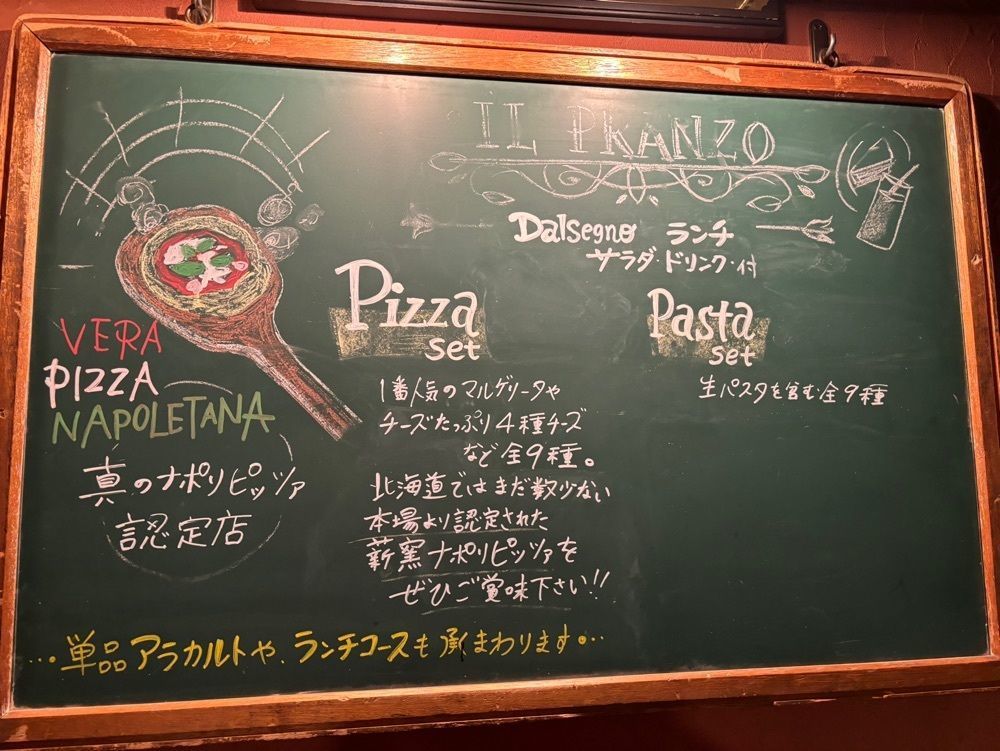 IL PRANZO
Dalsegno ランチ
サラダ・ドリンク・付
VERA
PIZZA
NAPOLETANA
真のナポリピッツァ
認定店
Pizza
set
1番人気のマルゲリータや
チーズたっぷり4種チーズ
など全9種。
北海道ではまだ数少ない
本場より認定された
薪窯ナポリピッツァを
ぜひご賞味下さい!!
Pasta
set
生パスタを含む全9種
...単品アラカルトや、ランチコースも承まわります。...